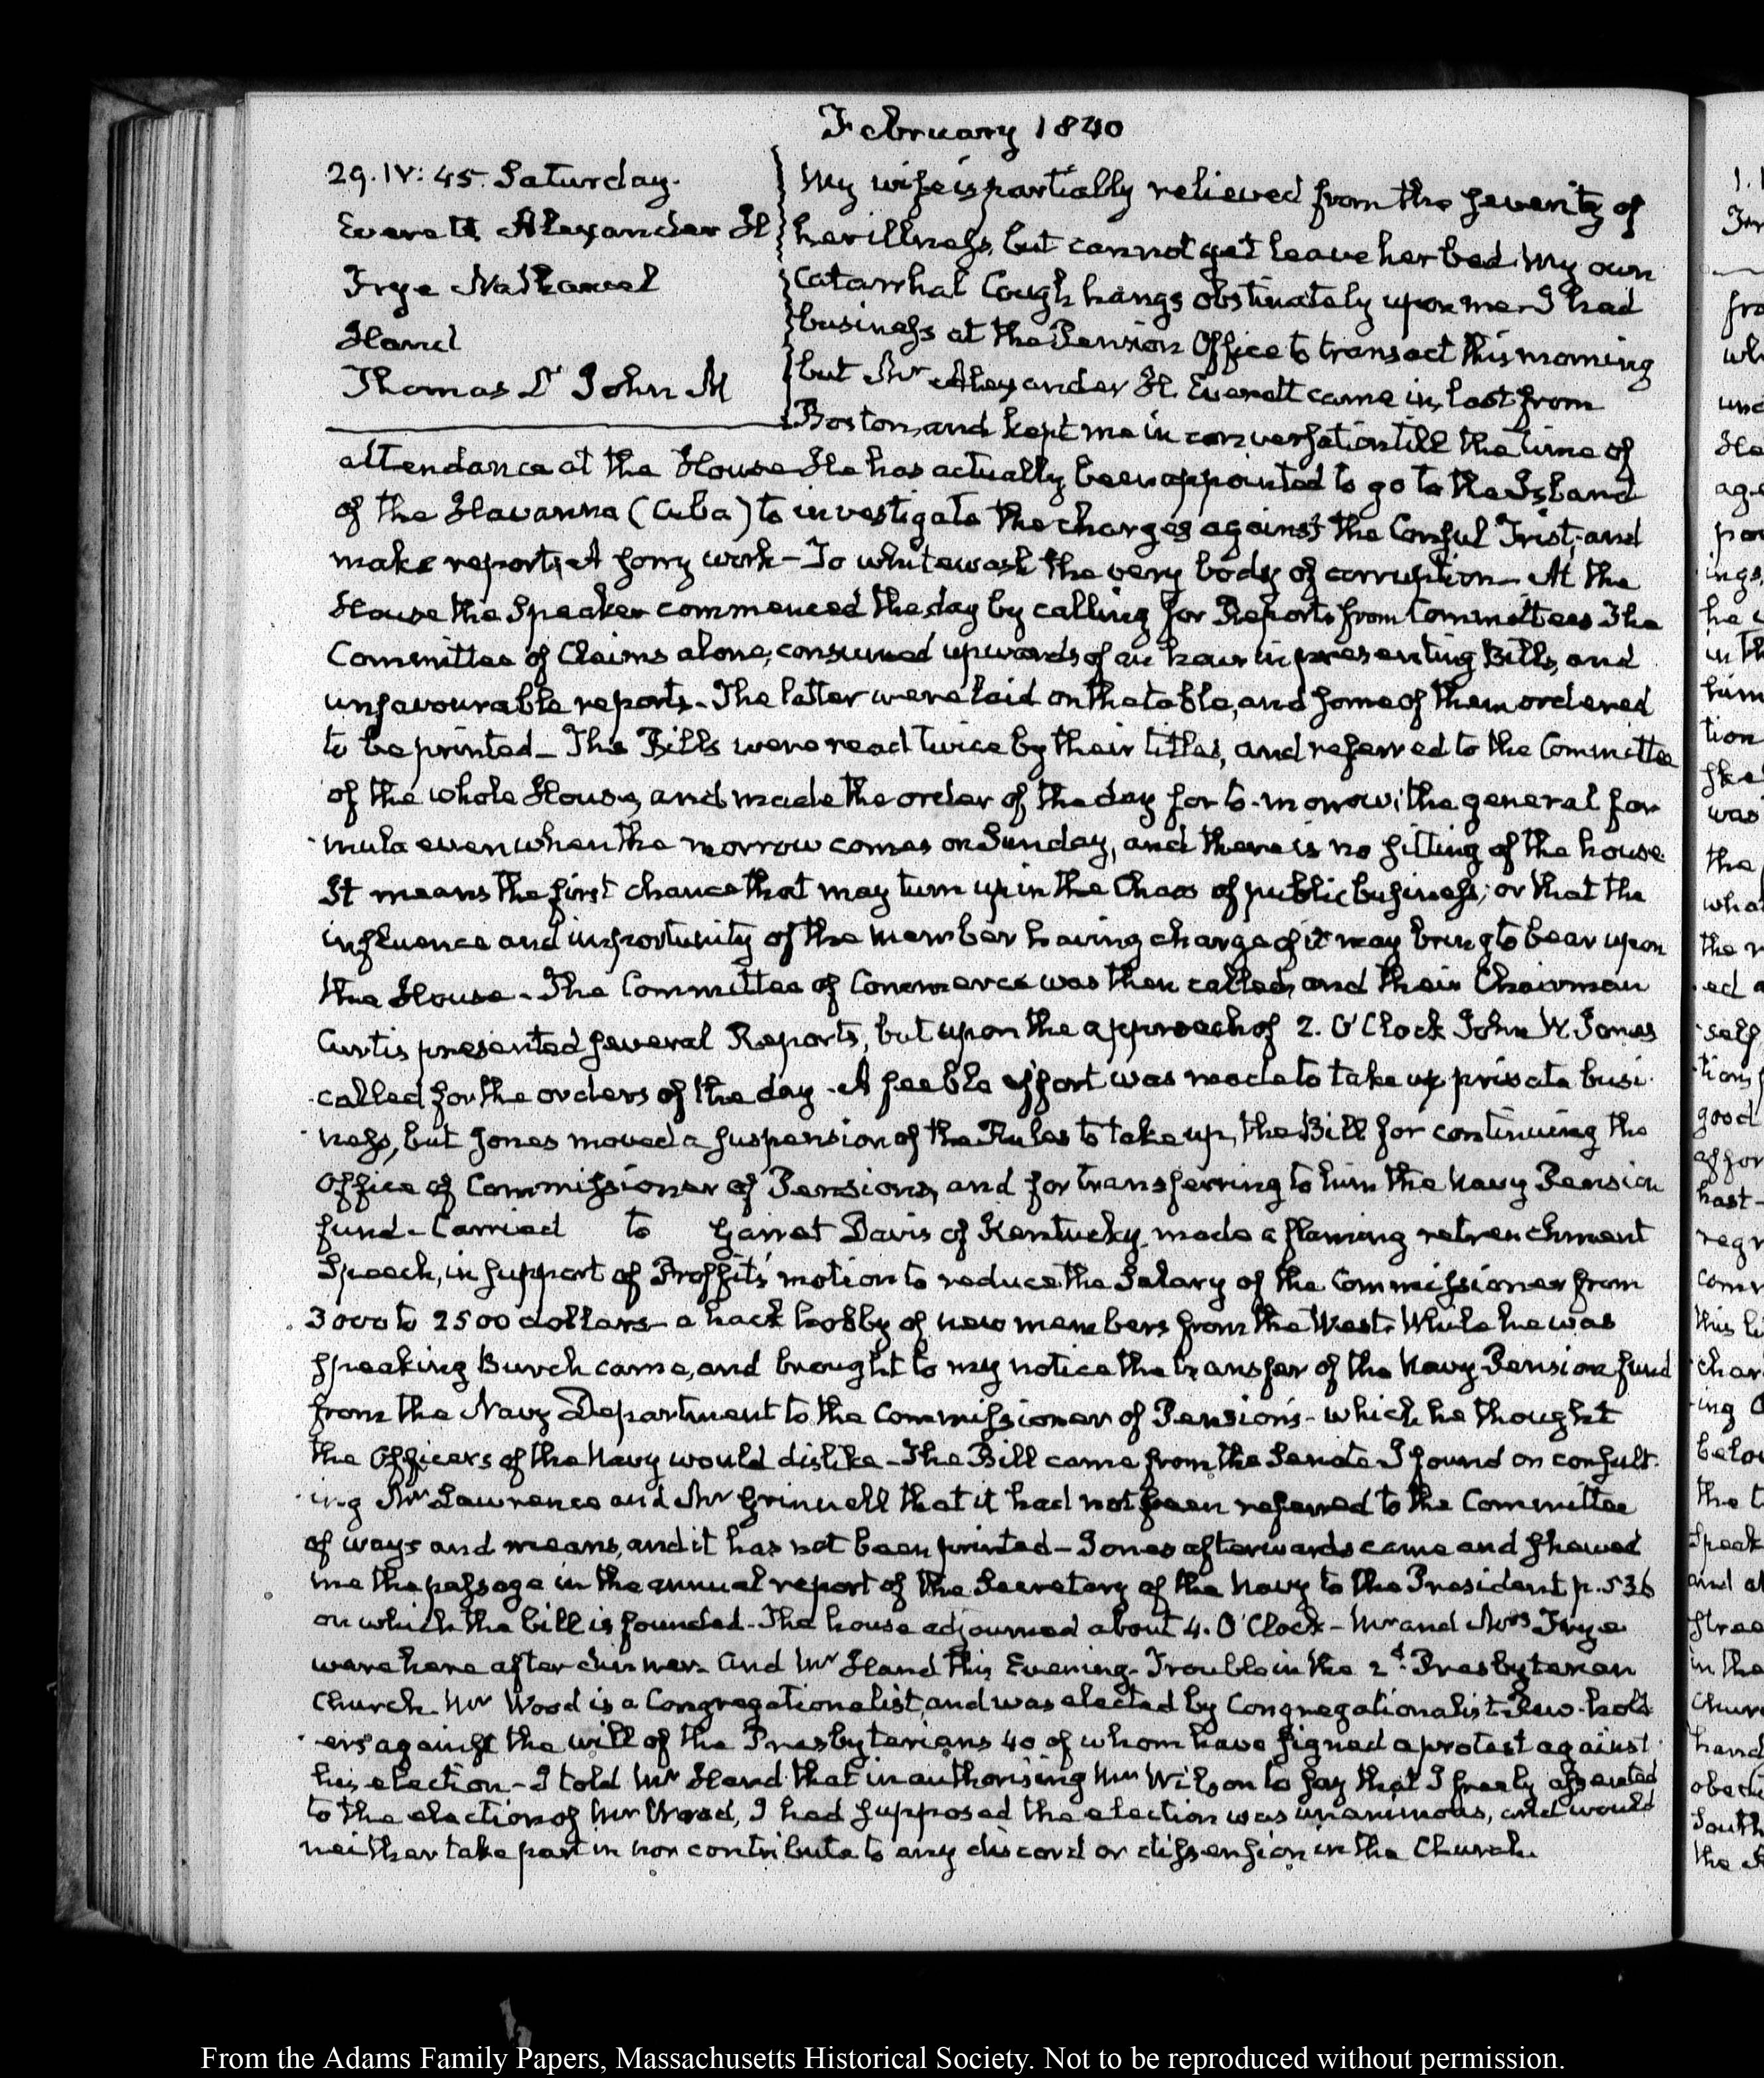 February 1840
29. IV: 45. Saturday.
Everett Alexander H
Frye Nathaniel
Hand
Thomas Dr John M
My wife is partially relieved from the severity of
her illness, but cannot yet leave her bed. My own
Catarrhal Cough hangs obstinately upon me. I had
business at the Pension Office to transact this morning
but Mr Alexander H. Everett came in, last from
Boston, and kept me in conversation till the time of
attendance at the House. He has actually been appointed to go to the Island
of the Havanna (Cuba) to investigate the charges against the Consul Trist; and
make report. A sorry work — To whitewash the very body of corruption — At the
House the Speaker commenced the day by calling for Reports from Committees. The
Committee of Claims alone, consumed upwards of an hour in presenting Bills, and
unfavourable reports. The latter were laid on the table, and some of them ordered
to be printed — The Bills were read twice by their titles, and referred to the Committee
of the whole House, and made the order of the day for to-morrow; the general for
mula even when the morrow comes on Sunday, and there is no sitting of the house.
It means the first chance that may turn up in the Chaos of public business; or that the
influence and importunity of the member having charge of it may bring to bear upon
the House. The Committee of Commerce was then called, and their Chairman
Curtis presented several Reports, but upon the approach of 2. O'Clock John W. Jones
called for the orders of the day. A feeble effort was made to take up private busi
ness, but Jones moved a suspension of the Rules to take up, the Bill for continuing the
Office of Commissioner of Pensions, and for transferring to him the Navy Pension
fund. Carried to Garret Davis of Kentucky made a flaming retrenchment
Speech, in support of Proffit's motion to reduce the Salary of the Commissioner from
3000 to 2500 dollars — a hack hobby of new members from the West. While he was
speaking Burch came, and brought to my notice the transfer of the Navy Pension fund
from the Navy Department to the Commissioner of Pensions — which he thought
the Officers of the Navy would dislike — The Bill came from the Senate. I found on consult
ing Mr Lawrence and Mr Grinnell that it had not been referred to the Committee
of ways and means, and it has not been printed — Jones afterwards came and shewed
me the passage in the annual report of the Secretary of the Navy to the President p. 536
on which the bill is founded. The house adjourned about 4. O'Clock — Mr and Mrs Frye
were here after dinner. and Mr Hand this Evening. Trouble in the 2d Presbyterian
Church. Mr Wood is a Congregationalist, and was elected by Congregationalist Pew-hold
ers against the will of the Presbyterians 40 of whom have signed a protest against
his election — I told Mr Hand that in authorising Mr Wilson to say that I freely assented
to the election of Mr Wood, I had supposed the election was unanimous, and would
neither take part in nor contribute to any discord or dissension in the Church.
From the Adams Family Papers, Massachusetts Historical Society. Not to be reproduced without permission.